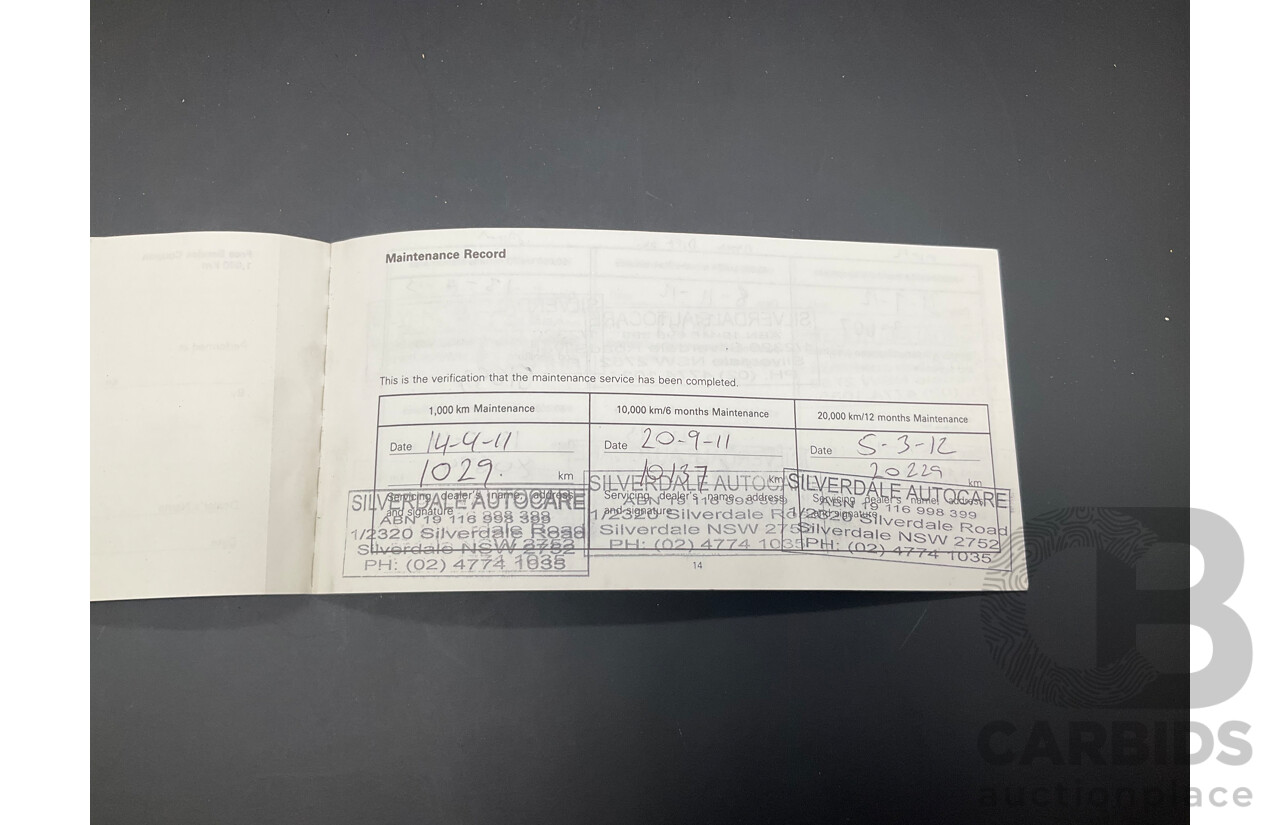 Maintenance Record
This is the verification that the maintenance service has been completed.
1,000 km Maintenance
Date 14-4-11
1029. km
Servicing dealer's name, address
and signature
SILVERDALE AUTOCARE
ABN 19 116 998 399
1/2320 Silverdale Road
Silverdale NSW 2752
PH: (02) 4774 1035
10,000 km/6 months Maintenance
Date 20-9-11
10137 km
Servicing dealer's name, address
and signature
SILVERDALE AUTOCA
ABN 19 116 998 399
1/2320 Silverdale Ro
Silverdale NSW 275
PH: (02) 4774 1035
20,000 km/12 months Maintenance
Date 5-3-12
20229 km
Servicing dealer's name, address
and signature
SILVERDALE AUTOCARE
ABN 19 116 998 399
1/2320 Silverdale Road
Silverdale NSW 2752
PH: (02) 4774 1035
14
CB
CARBIDS
auctionplace